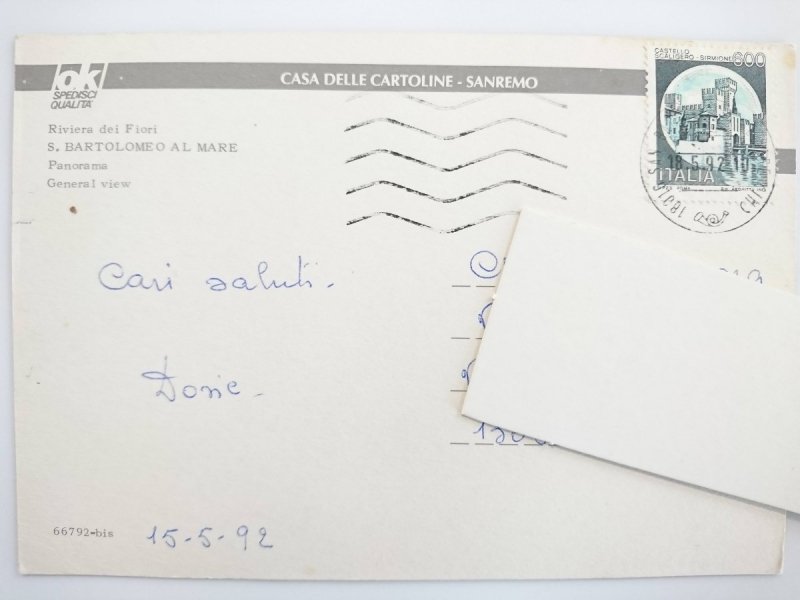 ok
SPEDISCI
QUALITA'
CASA DELLE CARTOLINE - SANREMO
Riviera dei Fiori
S. BARTOLOMEO AL MARE
Panorama
General view
CASTELLO
SCALIGERO - SIRMIONE
600
ITALIA
18.5.92
Cari saluti.
66792-bis
15-5-92